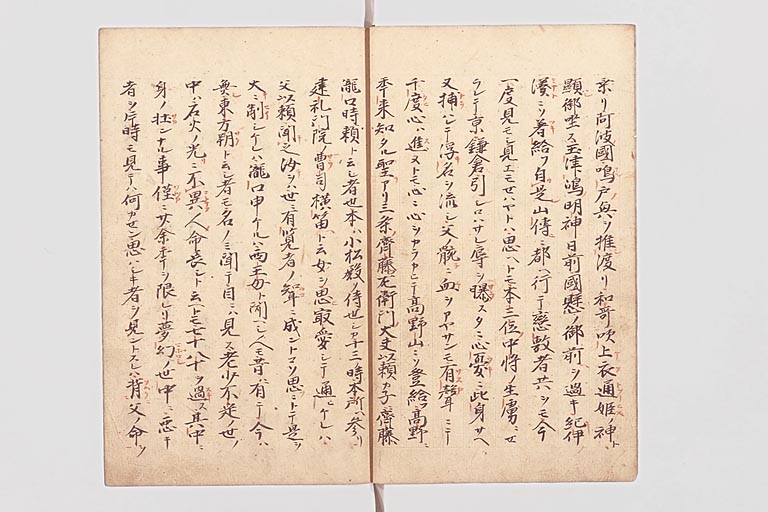 乗リ阿波國鳴戸奥ヲ推渡リ和哥吹上衣通姫ノ神ト
顕御坐ス玉津嶋明神日前國懸ノ御前ヲ過キ紀伊
湊ニソ着給フ自是山傳ニ都ヘ行テ戀敷者共ヲモ今
一度見モシ見エモセハヤトハ思ヘトモ本三位中将ノ生虜ニセ
ラレテ京鎌倉引シロハサレ辱ヲ曝スタニ心憂ニ此身サヘ
又捕ハレテ浮名ヲ流シ父ノ骸ニ血ヲアヤサンモ有繋ニテ
千度心ハ進メトモ心ニ心ヲカラカヒテ高野山ニソ登給フ高野ニ
年来知タル聖アリ三条齊藤左衛門大夫以頼カ子齊藤
瀧口時頼ト云シ者也本ハ小松殿ノ侍也シカ十三ノ時本所ヘ参リ
建礼門院ノ曹司横笛ト云女ヲ思最愛シテ通ヒケレハ
父以頼聞之汝ヲハ世ニ有覧者ノ聟ニ成ントコソ思ニトテ是ヲ
大ニ制シケレハ瀧口申ケルハ西王母ト聞ヘシ人モ昔ハ有テ今ハ
無東方朔ト云シ者モ名ノミ聞テ目ニハ見ス老少不定ノ世ノ
中ニ石火ノ光ニ不異人命長シト云トモ七十八十ヲ過ス其中ニ
身ノ壮ンナル事僅ニ廿余年ヲ限レリ夢幻ノ世中ニ悪キ
者ヲ片時モ見テハ何カセン思ハシキ者ヲ見ントスレハ背父ノ命ヲ